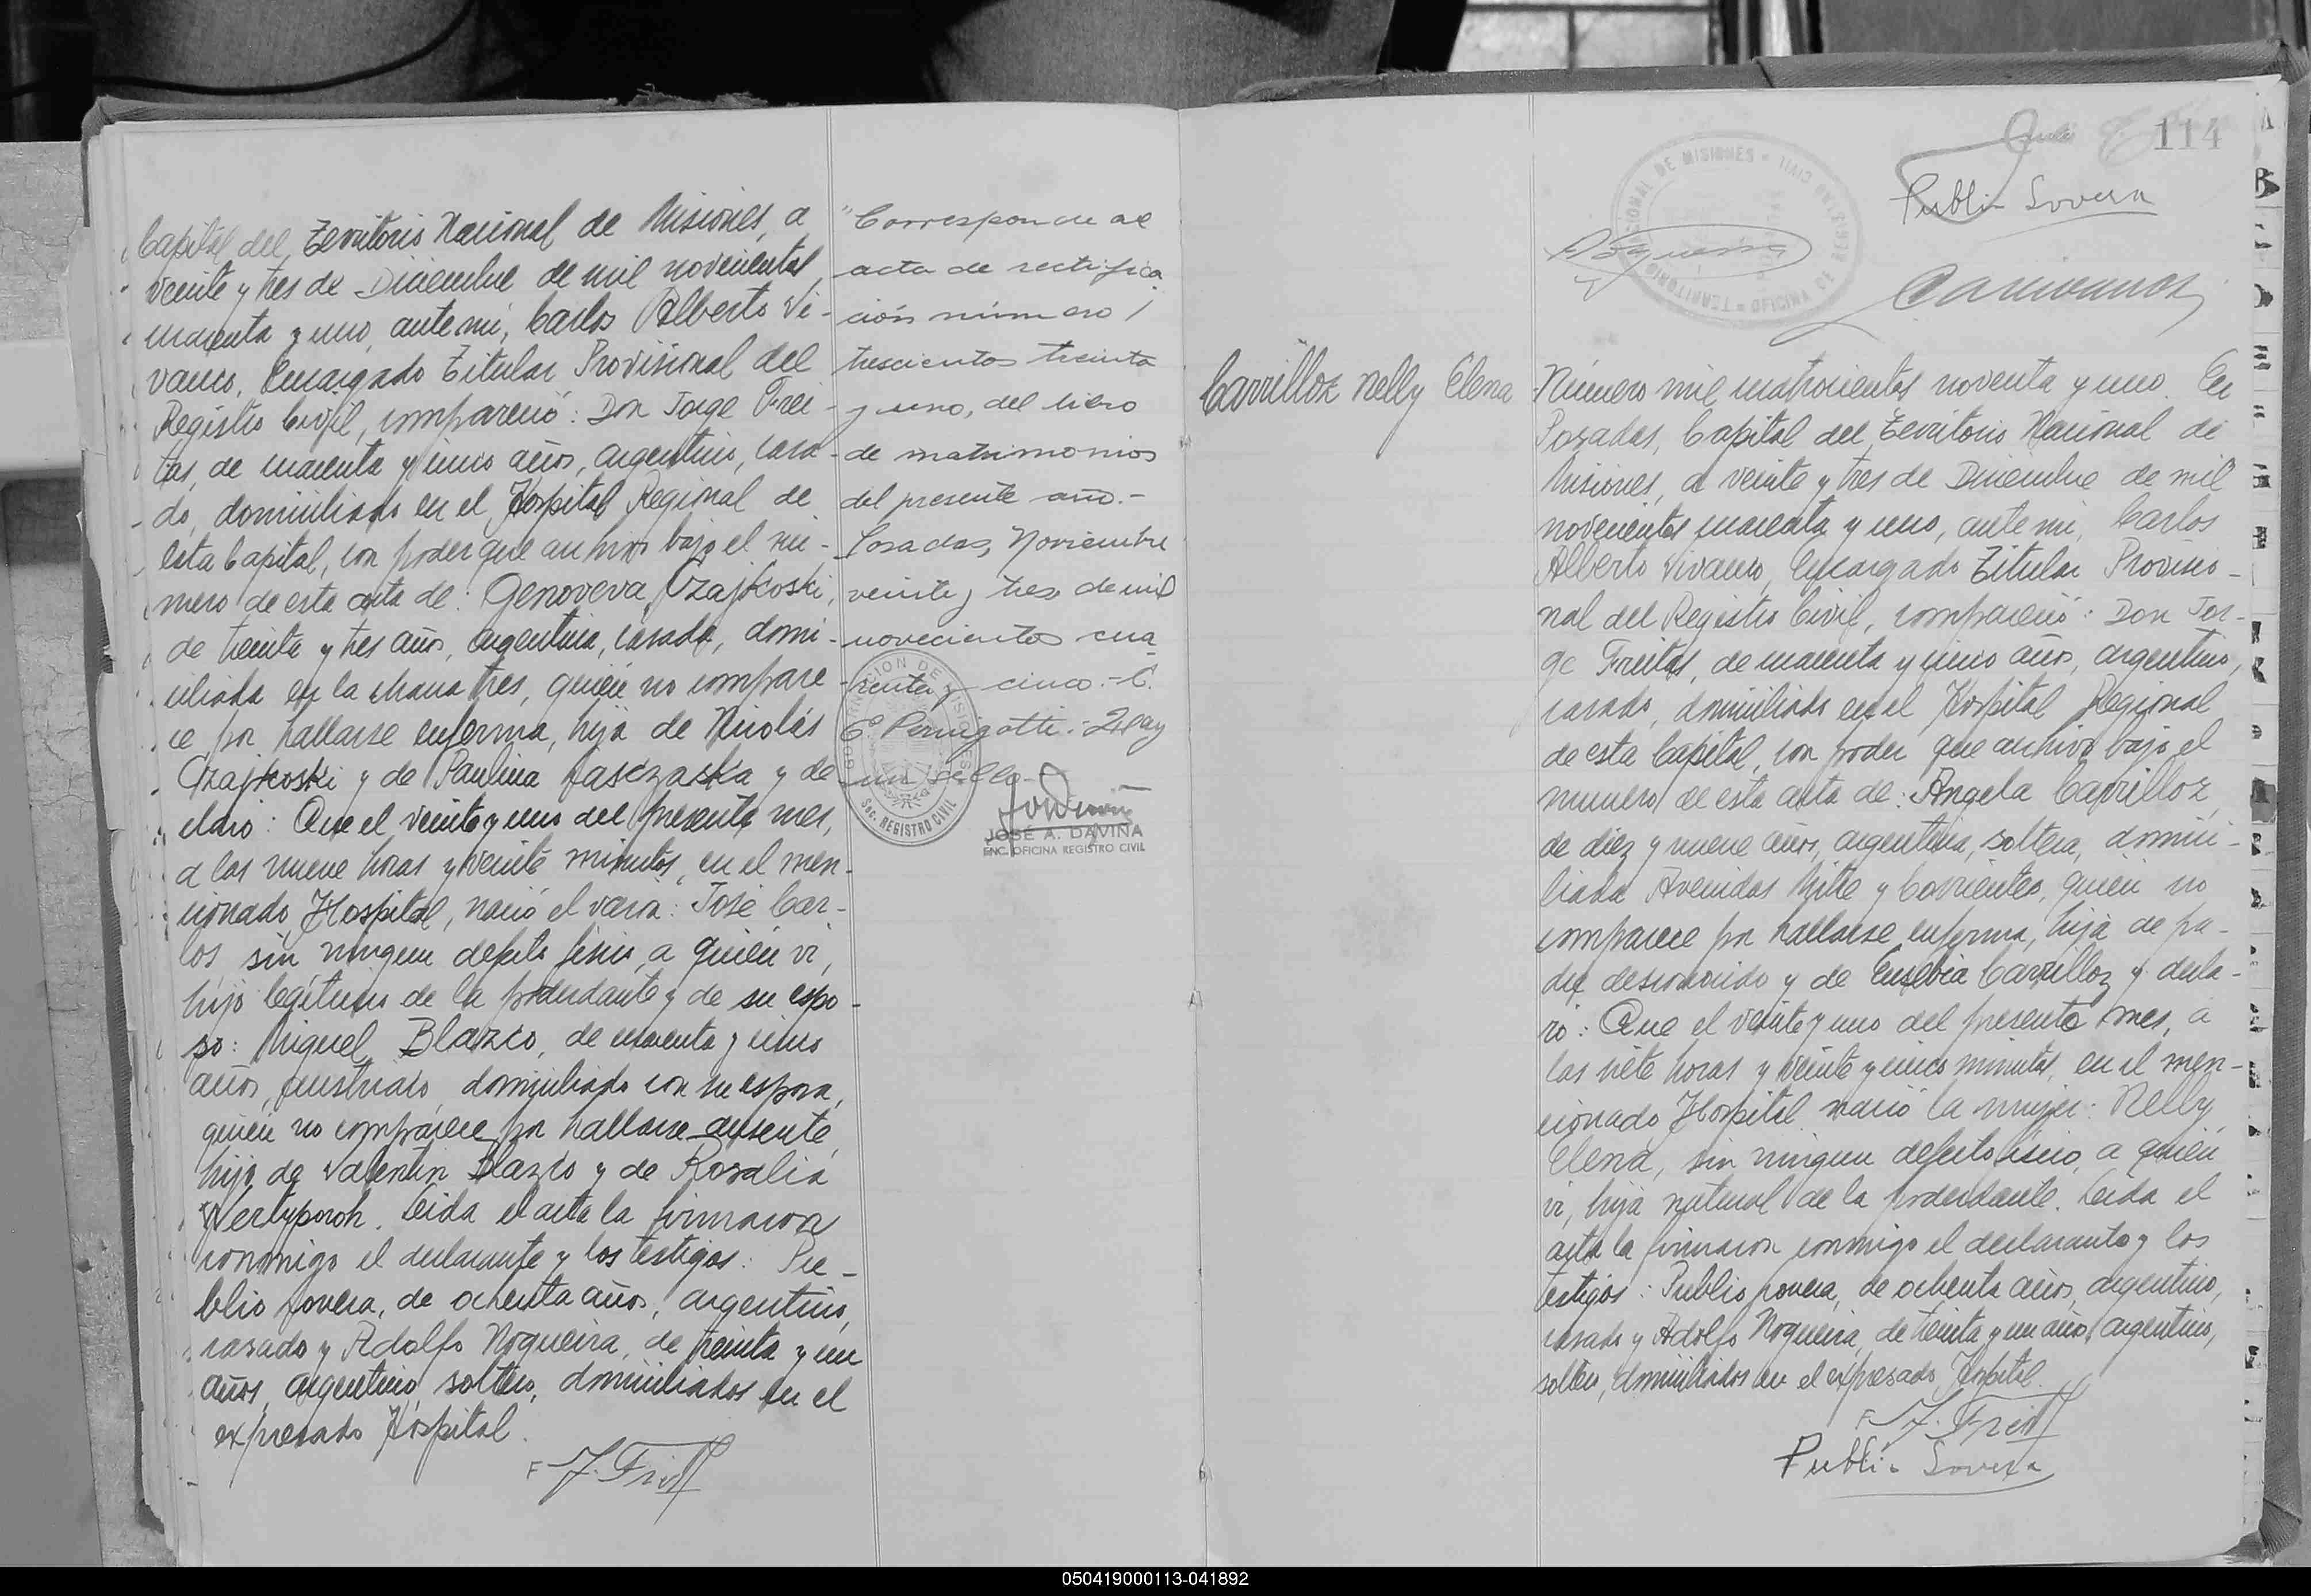 Capital del Territorio Nacional de Misiones, a
veinte y tres de Diciembre de mil novecientos
cuarenta y uno, ante mi, Carlos Alberto Vi-
vanco, Encargado Titular Provisional del
Registro Civil, compareció: Don Jorge Frei-
tas, de cuarenta y cinco años, argentino, casa-
do, domiciliado en el Hospital Regional de
esta Capital, con poder que archivo bajo el nú-
mero de esta acta de: Genoveva Czajkoski,
de treinta y tres años, argentina, casada, domi-
ciliada en la chacra tres, quién no compare
ce por hallarse enferma, hija de Nicolás
Czajkoski y de Paulina Lasczaska y de
claró: Que el veinte y uno del presente mes,
a las nueve horas y veinte minutos, en el men-
cionado Hospital, nació el varón: José Car-
los, sin ningun defecto fisico, a quién vi,
hijo legítimo de la poderdante y de su espo-
so: Miguel Blazco, de cuarenta y cinco
años, austriaco, domiciliado con su esposa,
quién no comparece por hallarse ausente,
hijo de Valentin Blazco y de Rosalia
Wertyporoh. Leida el acta la firmaron
conmigo el declarante y los testigos: Pu-
blio Lovera, de ochenta años, argentino,
casado y Adolfo Noqueira, de treinta y un
años, argentino, soltero, domiciliados en el
expresado Hospital.
F J. Freit
"Corresponde al
acta de rectifica
ción número /
trescientos treinta
y uno, del libro
de matrimonios
del presente año.-
Posadas, Noviembre
veinte y tres de mil
novecientos cua
renta y cinco.- C.
E. Perugotti.- Hay
un sello.-
Sec. REGISTRO CIVIL
JOSE A. DAVIÑA
ENC. OFICINA REGISTRO CIVIL
114
Publio Lovera
A Noqueira
CAVivanco
Carrilloz Nelly Elena
Número mil cuatrocientos noventa y uno. En
Posadas, Capital del Territorio Nacional de
Misiones, a veinte y tres de Diciembre de mil
novecientos cuarenta y uno, ante mi, Carlos
Alberto Vivanco, Encargado Titular Provisio-
nal del Registro Civil, compareció: Don Jor-
ge Freitas, de cuarenta y cinco años, argentino,
casado, domiciliado en el Hospital Regional
de esta Capital, con poder que archivo bajo el
numero de esta acta de: Angela Carrilloz,
de diez y nueve años, argentina, soltera, domici-
liada Avenidas Mitre y Corrientes, quién no
comparece por hallarse enferma, hija de pa-
dre desconocido y de Eusebia Carrilloz y decla-
ró: Que el veinte y uno del presente mes, a
las siete horas y veinte y cinco minutos, en el men-
cionado Hospital nació la mujer: Nelly
Elena, sin ningun defecto fisico, a quién
vi, hija natural de la poderdante. Leida el
acta la firmaron conmigo el declarante y los
testigos: Publio Lovera, de ochenta años, argentino,
casado y Adolfo Noqueira, de treinta y un años, argentino,
soltero, domiciliados en el expresado Hospital.
F J. Freit
Publio Lovera
050419000113-041892